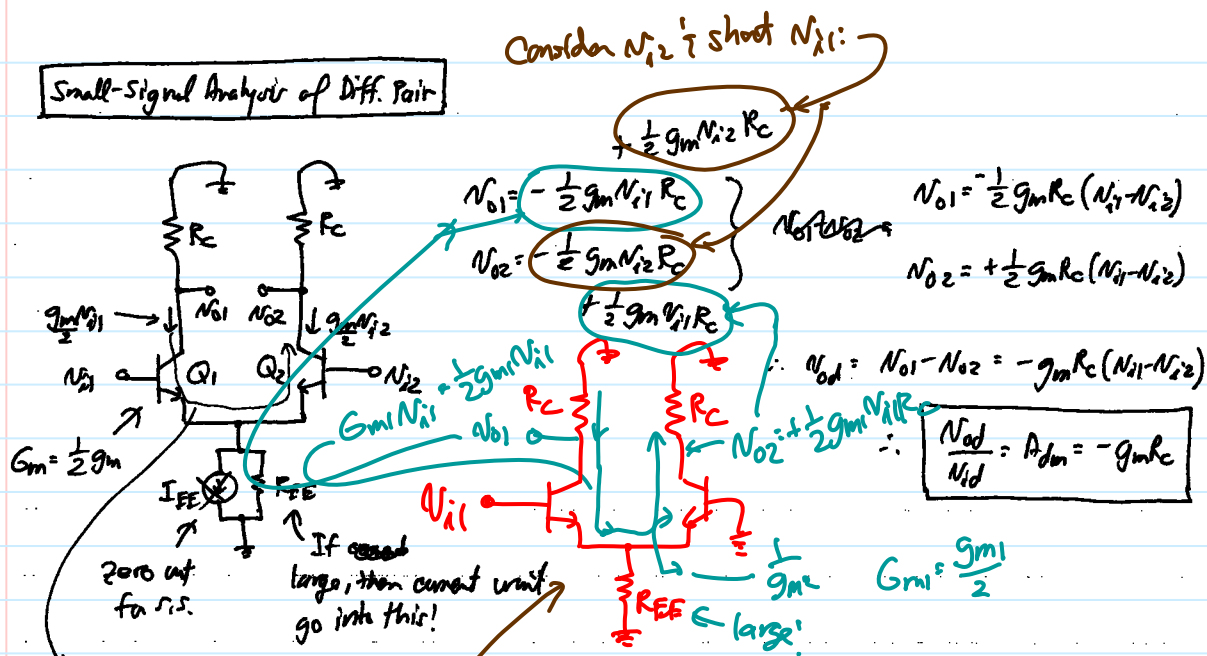 Consider Vi2 & short Vi1:
Small-Signal Analysis of Diff. Pair
+ 1/2 gm Vi2 RC
Vo1 = - 1/2 gm Vi1 RC
Vo2 = - 1/2 gm Vi2 RC
+ 1/2 gm Vi1 RC
Vo1 = - 1/2 gm RC (Vi1 - Vi2)
Vo2 = + 1/2 gm RC (Vi1 - Vi2)
∴ Vod = Vo1 - Vo2 = - gm RC (Vi1 - Vi2)
∴ Vod/Vid = Adm = - gm RC
RC
RC
Vo1
Vo2
gm Vi1 / 2
gm Vi2 / 2
Vi1
Q1
Q2
Vi2
Gm = 1/2 gm
IEE
REE
Zero out
for s.s.
If
large, then current won't
go into this!
Gm1 Vi1 = 1/2 gm1 Vi1
Vo1
RC
RC
Vo2 = + 1/2 gm1 Vi1 R
Vi1
1/gm2
Gm1 = gm1/2
REE
large!